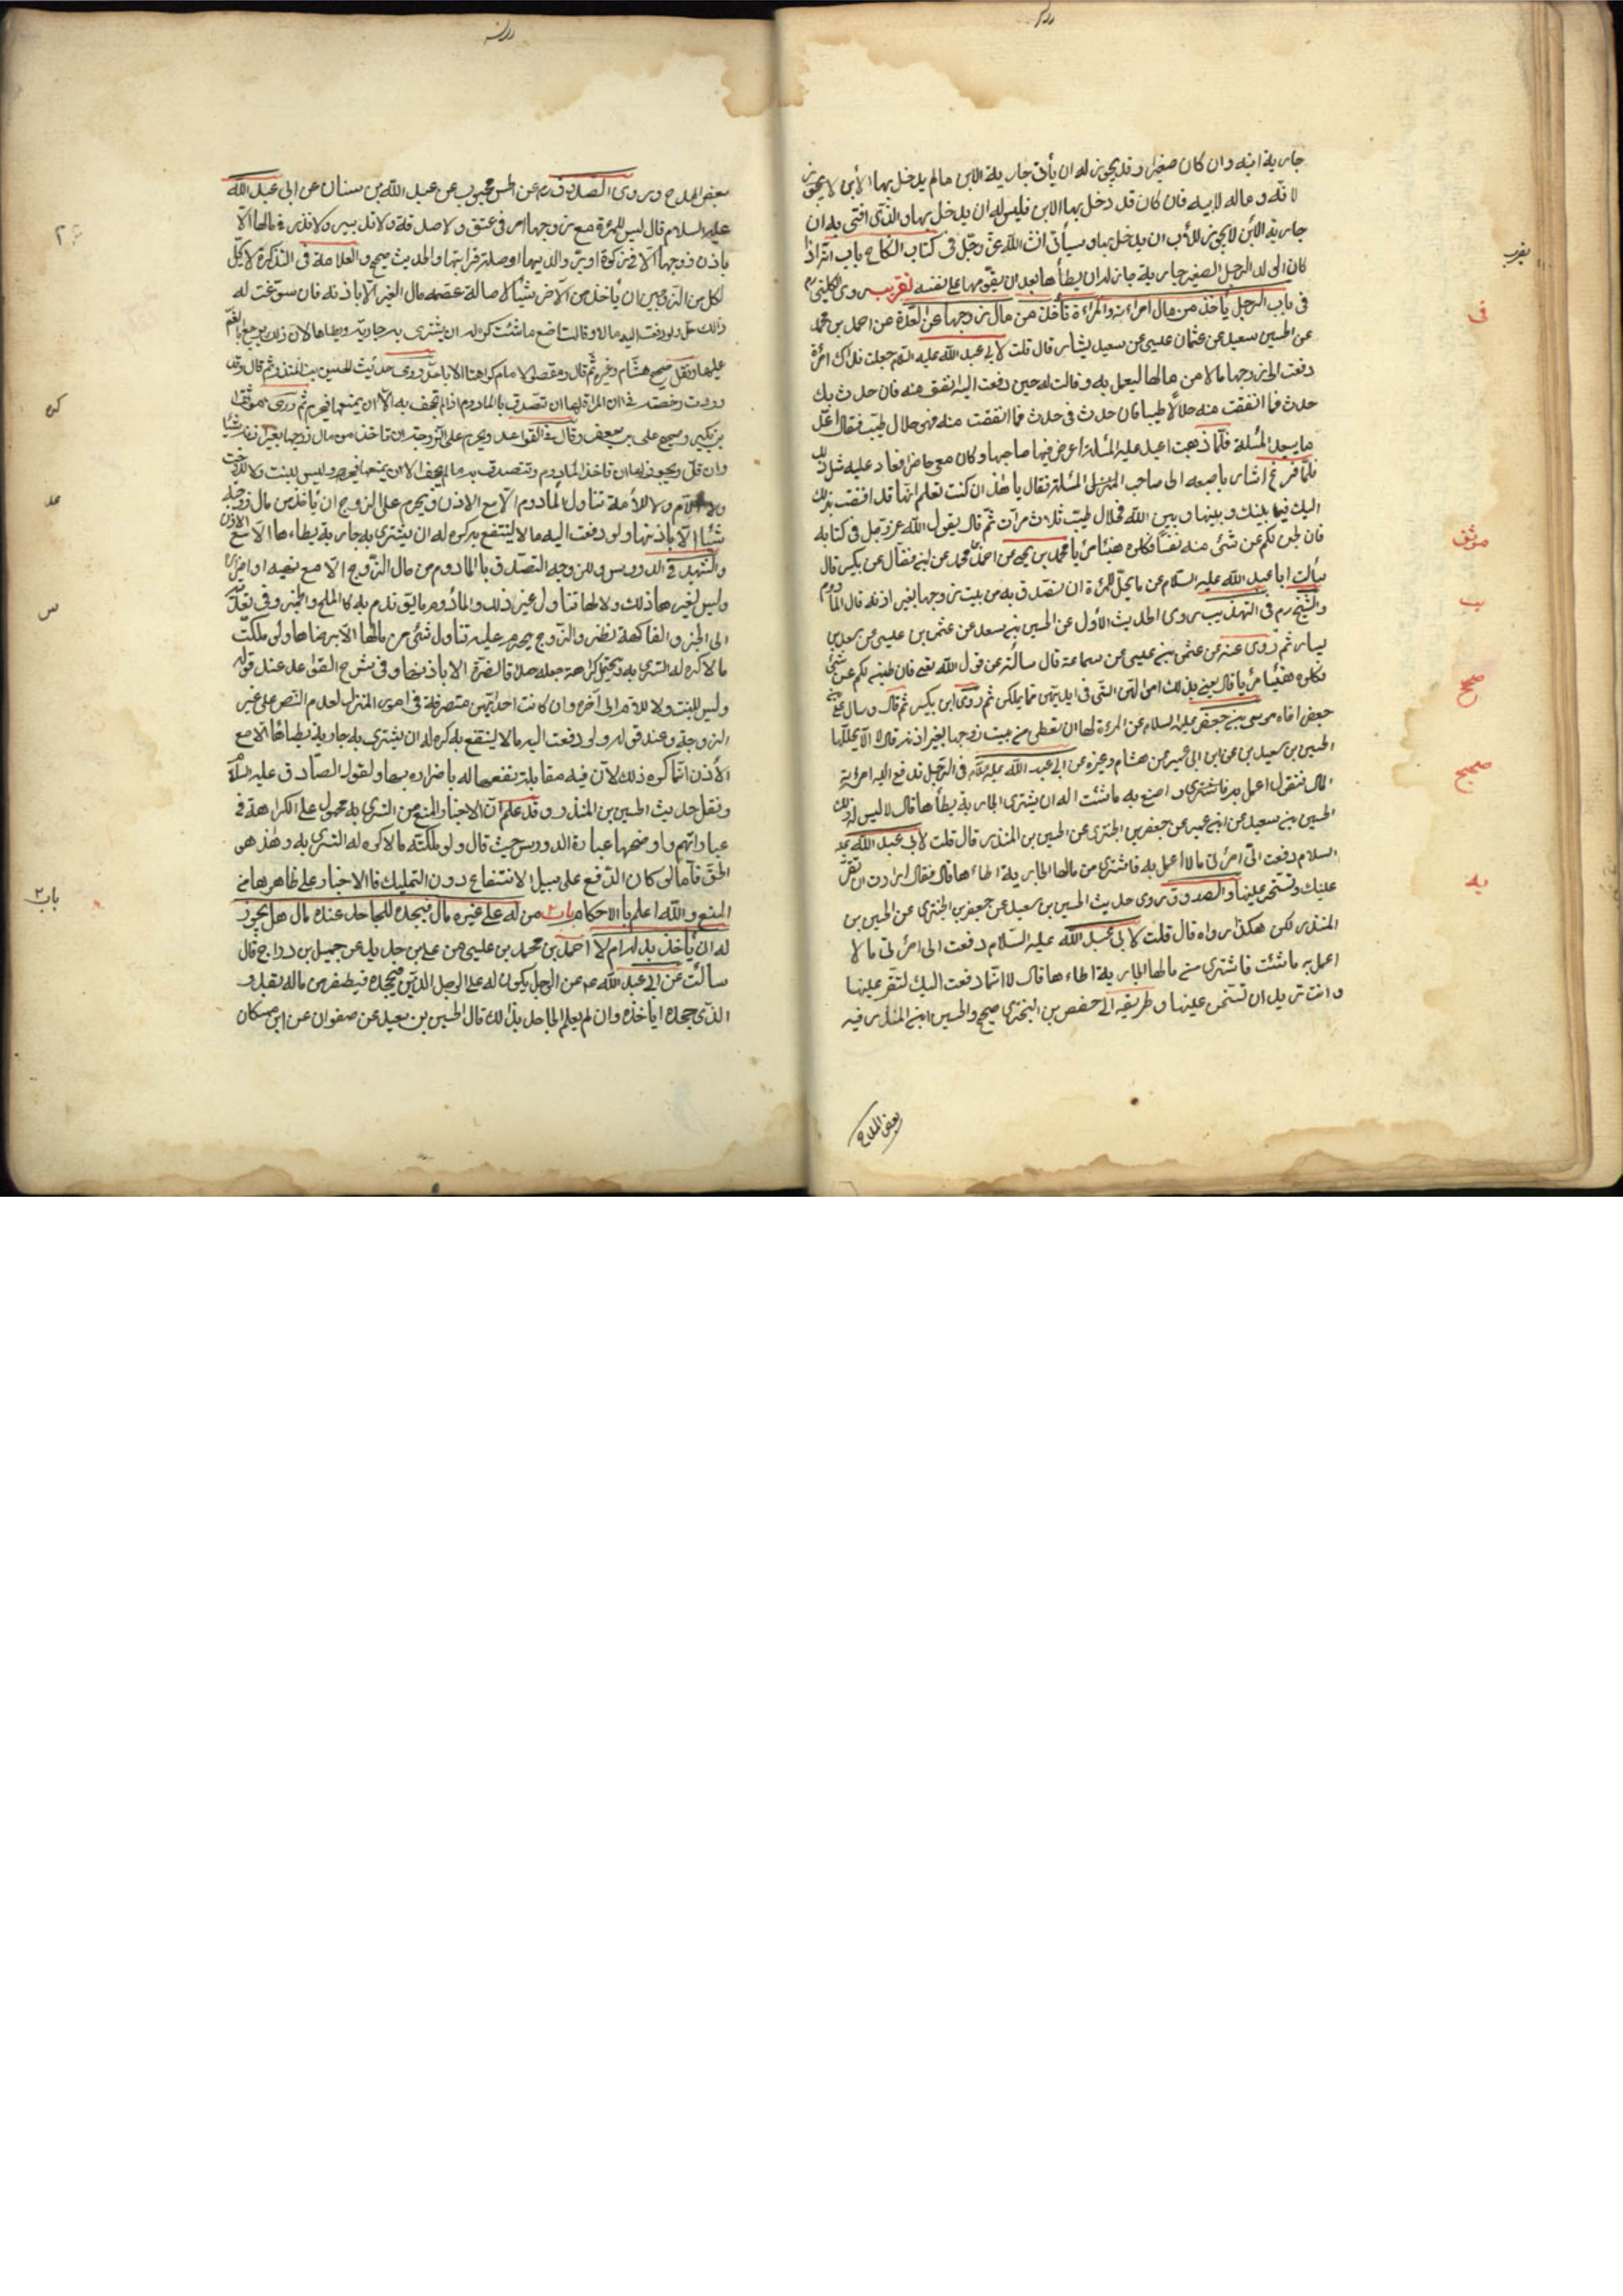 جارية ابنه وان كان صغيرا وقد يجوز له ان يأتى جارية الابن مالم يدخل بها الابن لا يجوز
لانه و ماله لابيه فان كان قد دخل بها الابن فليس له ان يدخل بها والذى افتى به ان
جارية الابن لا يجوز للاب ان يدخل بها وسيأتى انشاء الله عز وجل فى كتاب النكاح باب انه اذا
كان الى لد الرجل الصغير جارية جاز له ان يطأها بعد ان يقومها على نفسه تقريب روى الكلينى
فى باب الرجل يأخذ من مال امراءته والمراءة تأخذ من مال زوجها عن العدة عن احمد بن محمد
عن الحسين سعيد عن عثمان عليسى عن سعيد يشار قال قلت لابى عبد الله عليه السلام جعلت فداك امرأة
دفعت الى زوجها مالا من مالها ليعمل به وقالت له حين دفعت اليه انفق منه فان حدث بك
حدث فما انفقت منه حلالا طيبا فان حدث فى حدث فما انفقت منه فهو حلال طيب فقال اعد
ما سعيد المسئلة فلما ذهبت اعيد عليه المسئلة اعرض فيها صاحبها وكان معى حاضرا فعاد عليه مثل ذلك
فلما فرغ اشار باصبعه الى صاحب المسئلة فقال يا هذا ان كنت تعلم انها قد افضت بذلك
اليك فيما بينك وبينها وبين الله فحلال طيب ثلاث مرات ثم قال يقول الله عز وجل فى كتابه
فان طبن لكم عن شئ منه نفسا فكلوه هنيئا مريئا محمد بن يحيى عن احمد محمد عن ابن فضال عن بكير قال
سألت ابا عبد الله عليه السلام عن ما يحل للمرءة ان تصدق به من بيت زوجها بغير اذنه قال المأدوم
والشيخ رم فى التهذيب روى الحديث الأول عن الحسين بن سعيد عن عثمن بن عليسى عن سعيد بن
يسار ثم روى عنه عن عثمن بن عليسى عن سماعة قال سالته عن قول الله تعالى فان طبن لكم عن شئ
فكلوه هنيئا مريا قال يعنى بذلك اموالهن التى فى ايديهن مما يملكن ثم روى ابن بكير ثم قال وسال على بن
جعفر اخاه موسى بن جعفر عليه السلام عن المرءة لها ان تعطى من بيت زوجها بغير اذنه قال لا الا يحللها
الحسين بن سعيد بن عن ابن ابى عمير عن هشام وغيره عن ابى عبد الله عليه السلام فى الرجل تدفع اليه امرءته
المال فتقول اعمل به فاشترى و اصنع به ما شئت اله ان يشترى الجارية يطأها قال لا ليس له ذلك
الحسين بن سعيد عن ابن عمير عن جعفر بن البخترى عن الحسين بن المنذر قال قلت لابى عبد الله عليه
السلام دفعت الى امرأتى مالا اعمل به فاشترى من مالها الجارية اطاءها قال فقال ارادت ان تقر
عينك وتسخن عينها والصدوق روى حديث الحسين بن سعيد عن جعفر بن البخترى عن الحسين بن
المنذر لكن هكذا رواه قال قلت لابى عبد الله عليه السلام دفعت الى امرأتى مالا
اعمل به ما شئت فاشترى من مالها الجارية اطاءها قال لا انما دفعت اليك لتقر عينها
وانت تريد ان تسخن عينها وطريقه الى حفص بن البخترى صحيح والحسين ابن المنذر فيه
بعض المدح
تقريب
فى
موثق
يب
صحيح
صحيح
يه
بعض المدح وروى الصدوق ره عن الحسن محبوب عن عبد الله بن سنان عن ابى عبد الله
عليه السلام قال ليس للمرءة مع زوجها امر فى عتق ولا صدقة ولا تدبير ولا نذر فى مالها الا
باذن زوجها الا فى زكوة او بر والديها او صلة قرابتها والحديث صحيح والعلامة فى التذكرة لا يحل
لكل من الزوجين ان يأخذ من الآخر شيئا لاصالة عصمه مال الغير الا باذنه فان سوغت له
ذلك حل ولو دفعت اليه مالا وقالت اصنع ما شئت كره له ان يشترى به جارية ويطاها لان ذلك يرجع بالغم
عليها ونقل صحيح هشام وغيره ثم قال ومقصود الامام كراهة لا الاباحة وروى حديث الحسين بن المنذر ثم قال وقد
وردت رخصة فى ان المراة لها ان تصدق بالمادوم اذا لم تجحف به الا ان يمنعها فيحرم ثم روى موثقة
بن بكير وصحيح على بن جعفر وقال فى القواعد ويحرم على الزوجة ان تاخذ من مال زوجها بغير اذنه شيئا
وان قل ويجوز لها ان تاخذ المادوم وتتصدق به مالم يجحف الا ان يمنعها فيحرم وليس للبنت ولا للاخت
ولا الام ولا للأمة تناول المأدوم الا مع الاذن ويحرم على الزوج ان يأخذ من مال زوجته
شيئا الا باذنها ولو دفعت اليه مالا لينتفع به كره له ان يشترى به جارية يطاءها الا مع الاذن
والشهيد فى الدروس وللزوجة التصدق بالمادوم من مال الزوج الا مع نهيه او اضرار
وليس لغيرها ذلك ولا لها تناول غير ذلك والمأدوم ما يؤتدم به كالملح والجبن وفى تعديه
الى الخبز والفاكهة نظر والزوج يحرم عليه تناول شئ من مالها الا برضاها ولو ملكت
مالا كره له التسرى به ويحتمل كراهة جعله صداقا لضرة الا باذنها وفى شرح القواعد عند قوله
وليس للبنت ولا للام الى آخره وان كانت احديهن متصرفة فى امور المنزل لعدم النص على غير
الزوجة وعند قوله ولو دفعت اليه مالا لينتفع به كره له ان يشترى به جارية يطأها الا مع
الأذن انما كره ذلك لان فيه مقابلة نفعها له باضراره بها ولقول الصادق عليه السلام
ونقل حديث الحسين بن المنذر وقد علم ان الاخبار والمنع من التسرى به محمول على الكراهة فى
عباراتهم واوضحها عبارة الدروس حيث قال ولو ملكته مالا كره له التسرى به وهذا هو
الحق فأما لو كان الدفع على سبيل الانتفاع دون التمليك فالاخبار على ظاهرها فى
المنع والله اعلم بالاحكام باب٢ من له على غيره مال فيجحده للجاحد عنده مال هل يجوز
له ان يأخذ بدله ام لا احمد بن محمد بن عليسى عن على بن حديد عن جميل بن دراج قال
سألت عن ابى عبد الله ع عن الرجل يكون له على الرجل الدين فيجحده فيظفر من ماله بقدر
الذى جحده ايأخذه وان لم يعلم الجاحد بذلك قال الحسين بن سعيد عن صفوان عن ابن مسكان
كره
عد
س
باب٢